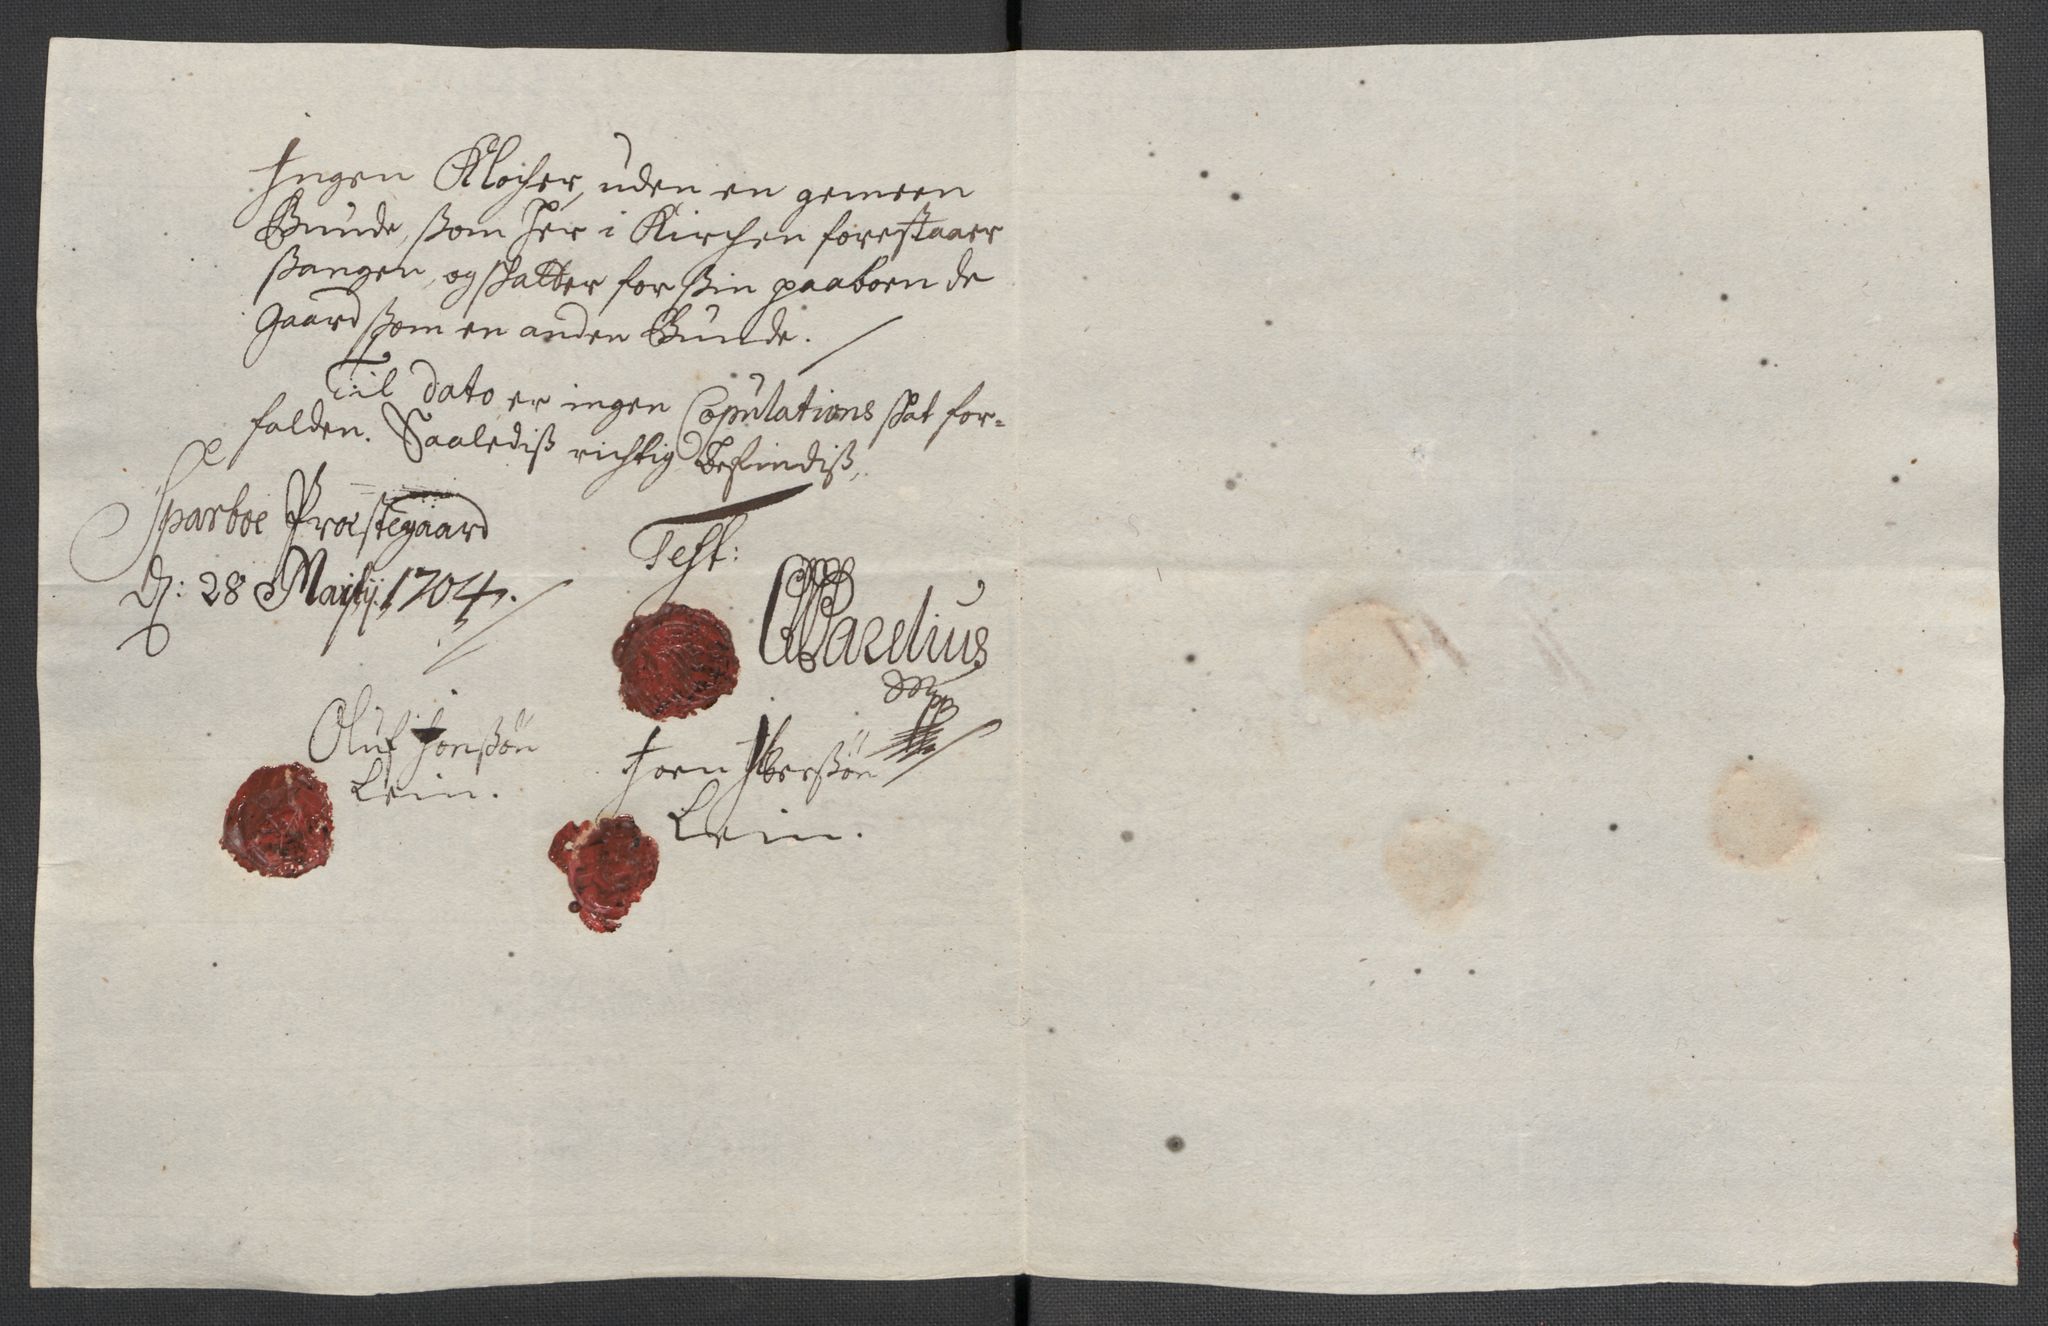 Ingen Klocher, uden en gemeen
Bunde, som her i Kirchen forestaaer
Sangen, og skatter for sin paaboende
gaard som en anden Bunde.
Til dato er ingen Copulations skat for-
falden. Saalediß richtig befindiß,
Sparboe Præstegaard
d: 28 Maÿ 1704.
Test:
Parelius
Mpp
Oluf Jonßön
Lein.
Joen Iverßön
Lein.